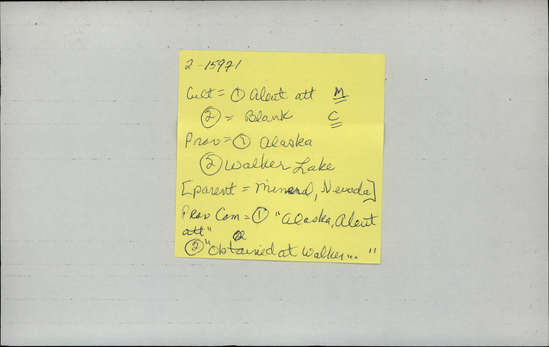 2-15971
Cult = ① Aleut att M
② = Blank C
Prov = ① Alaska
② Walker Lake
[parent = Mineral, Nevada]
Prov Com = ① "Alaska, Aleut
att"
② "Obtained at Walker... "